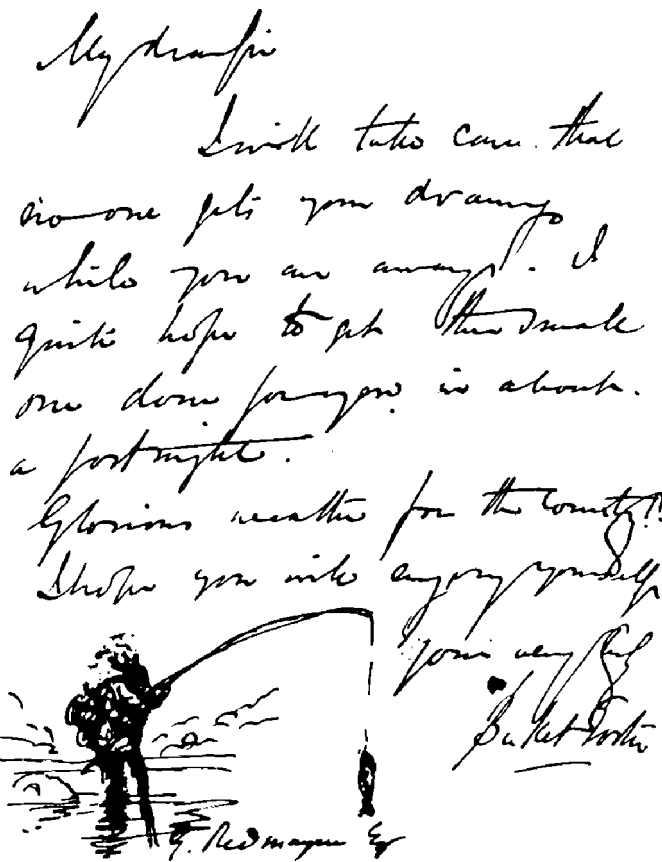 My dear Sir
I will take care that
no one gets your drawings
while you are away. I
quite hope to get the small
one done for you in about
a fortnight.
Glorious weather for the country!!
I hope you will enjoy yourself
Yours very truly
Birket Foster
G. Redmayne Esq